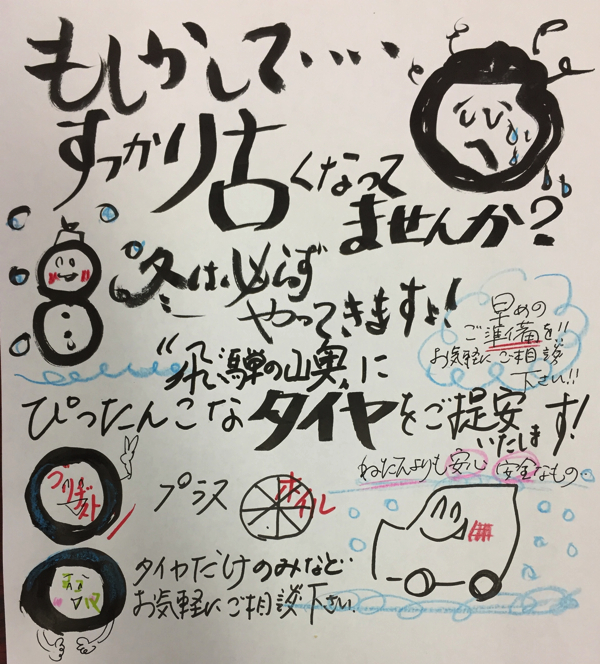 もしかして‥‥
すっかり古くなって
ませんか?
冬は必らず
やってきますよ!
早めの
ご準備を!!
お気軽にご相談
下さい!!
"飛騨の山奥"に
ぴったんこなタイヤをご提案
いたします!
ねだんよりも安心安全なもの‥
プラス
ホイル
タイヤだけのみなど‥
お気軽にご相談下さい